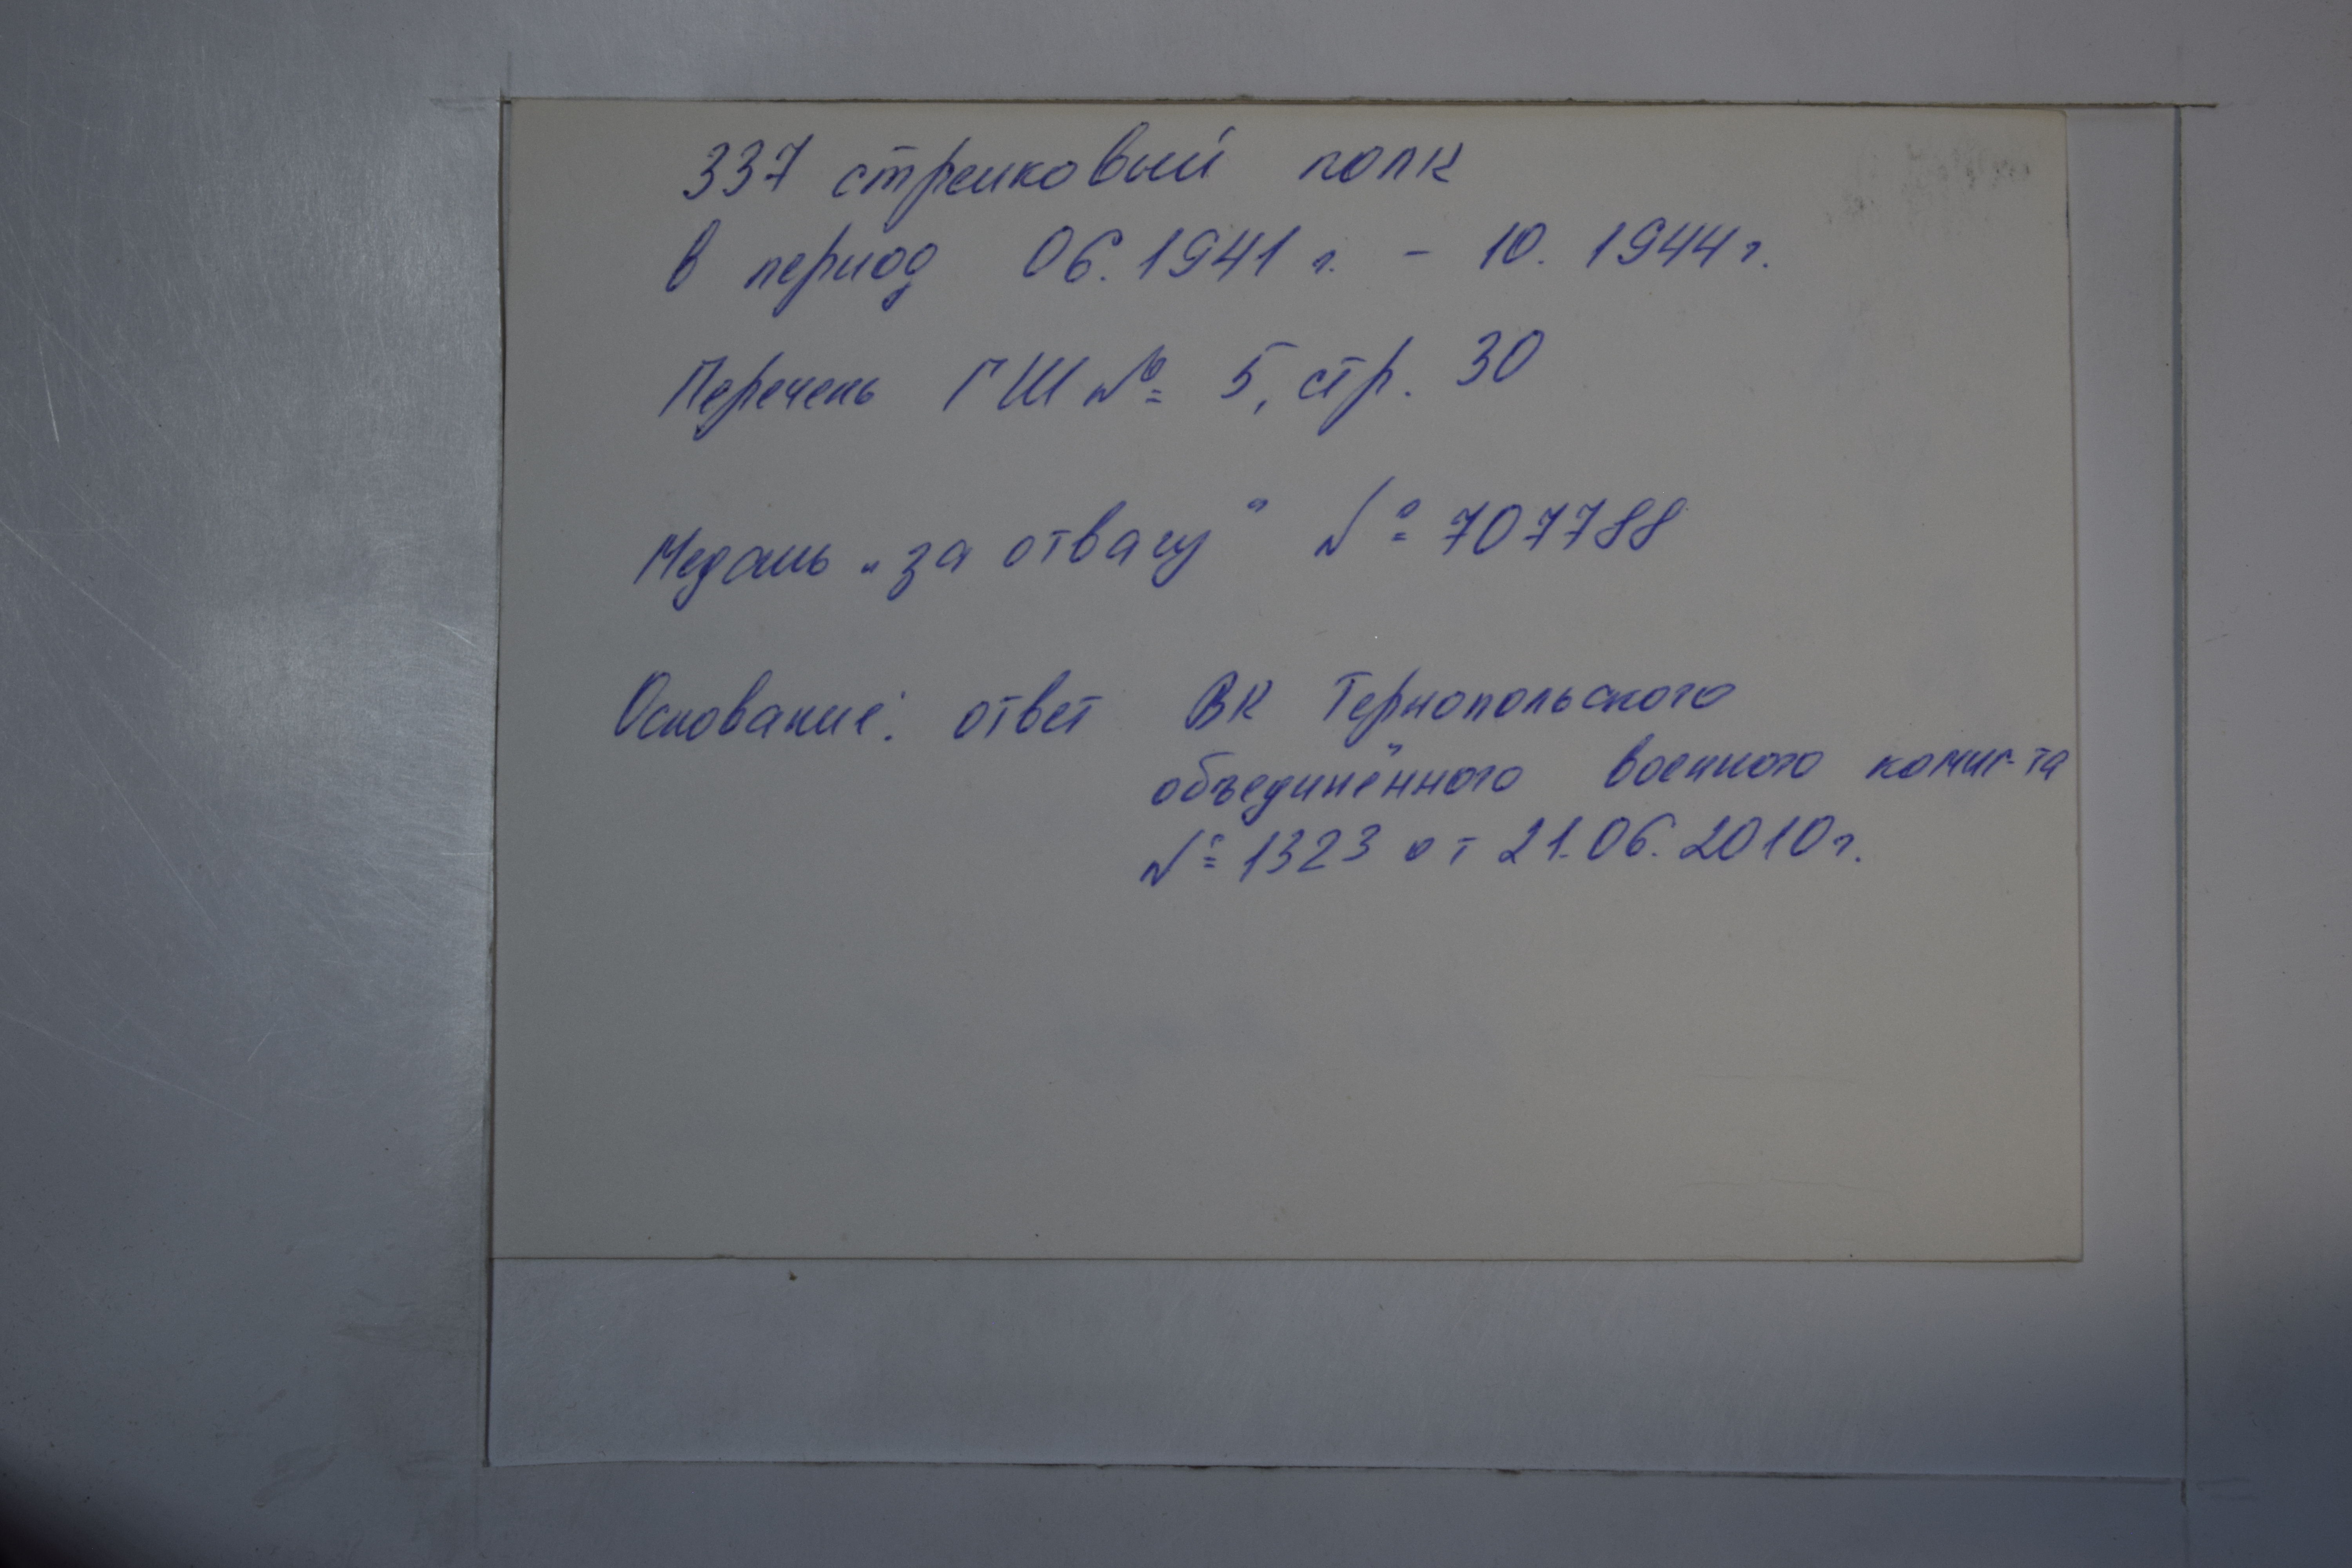 337 стрелковый полк
в период 06.1941 г. - 10. 1944 г.
Перечень ГШ № 5, стр. 30
Медаль „за отвагу" № 707788
Основание: ответ ВК Тернопольского
объединённого военного комис-та
№ 1323 от 21.06.2010 г.